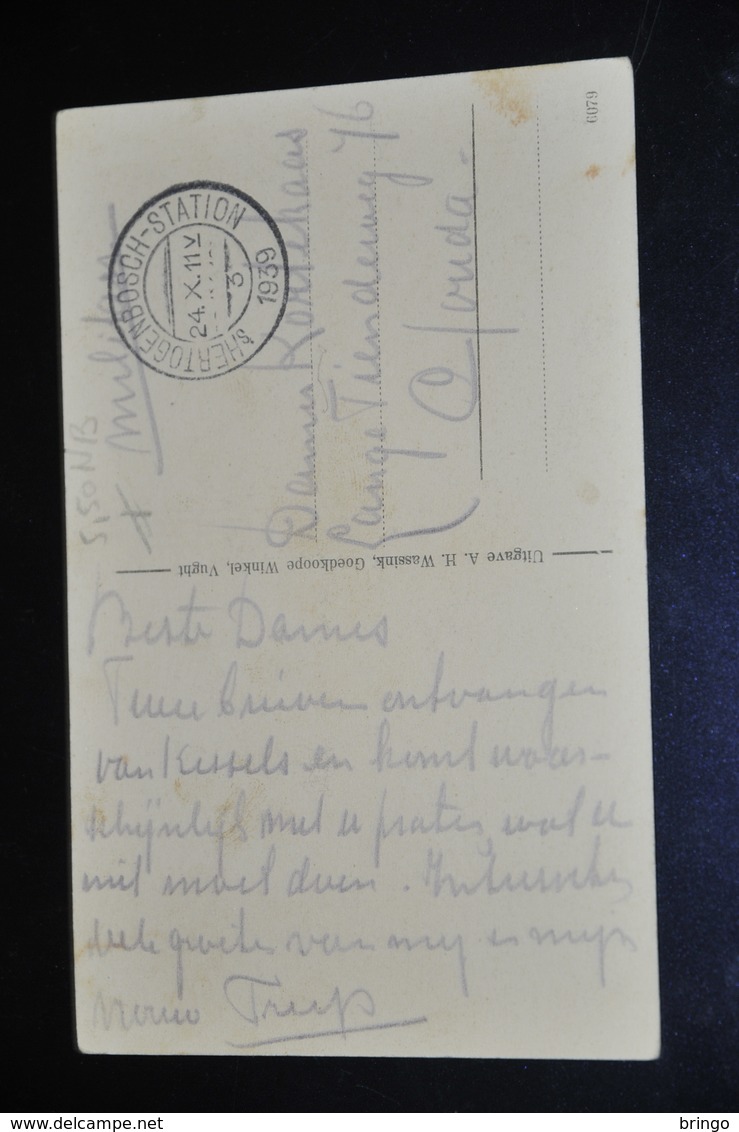 's HERTOGENBOSCH-STATION
24.X.11V
3
1939
5,50 NB
Militair
Dames Kortekaas
Lange Tiendeweg 76
Gouda.
6079
Uitgave A. H. Wassink, Goedkoope Winkel, Vught
Beste Dames
Twee brieven ontvangen
van Kessels en komt waar-
schijnlijk met u praten, wat u
moet doen. Intusschen
vele groeten van mij en mijn
vrouw
delcampe.net
bringo